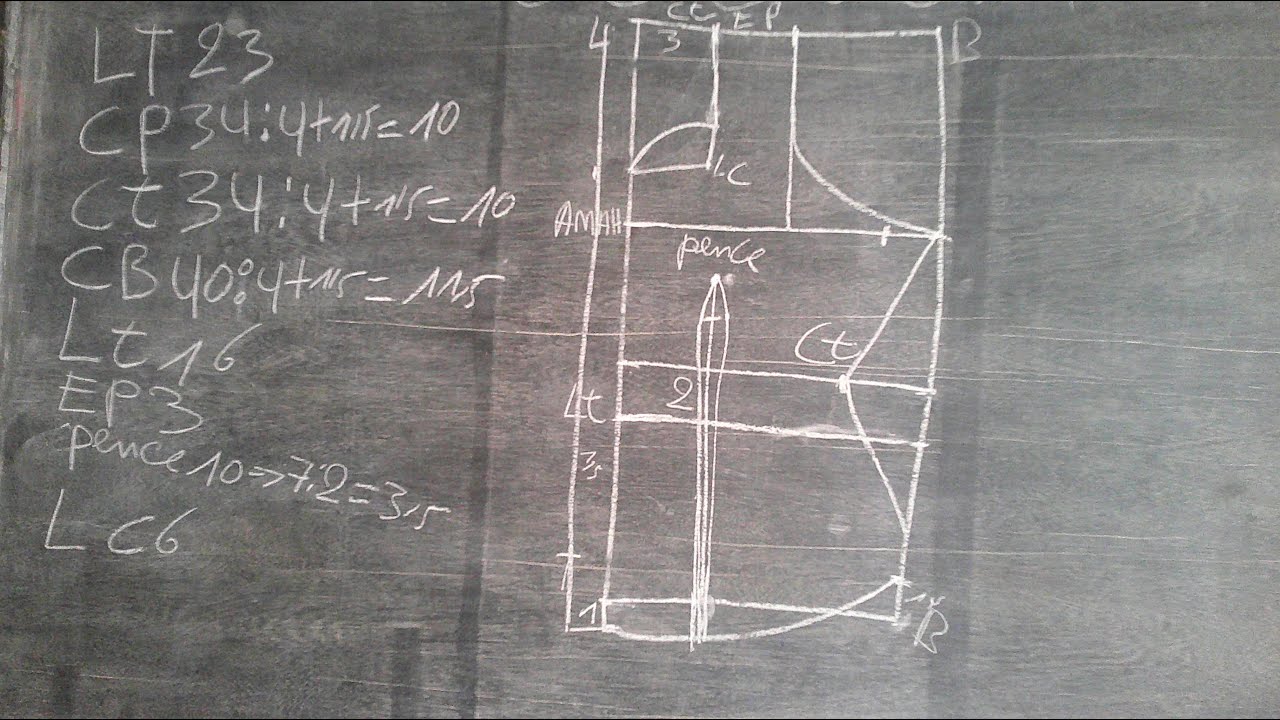 LT 23
CP 34:4+1,5=10
Ct 34:4+1,5=10
CB 40:4+1,5=11,5
Lt 16
EP 3
pence 10=>7:2=3,5
LC 6
Ct EP
4 3 B
LC
AMAH
pence
Ct
2
Lt
3,5
1
B